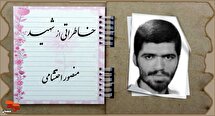 خاطراتی از شهید
منصور احتشامی